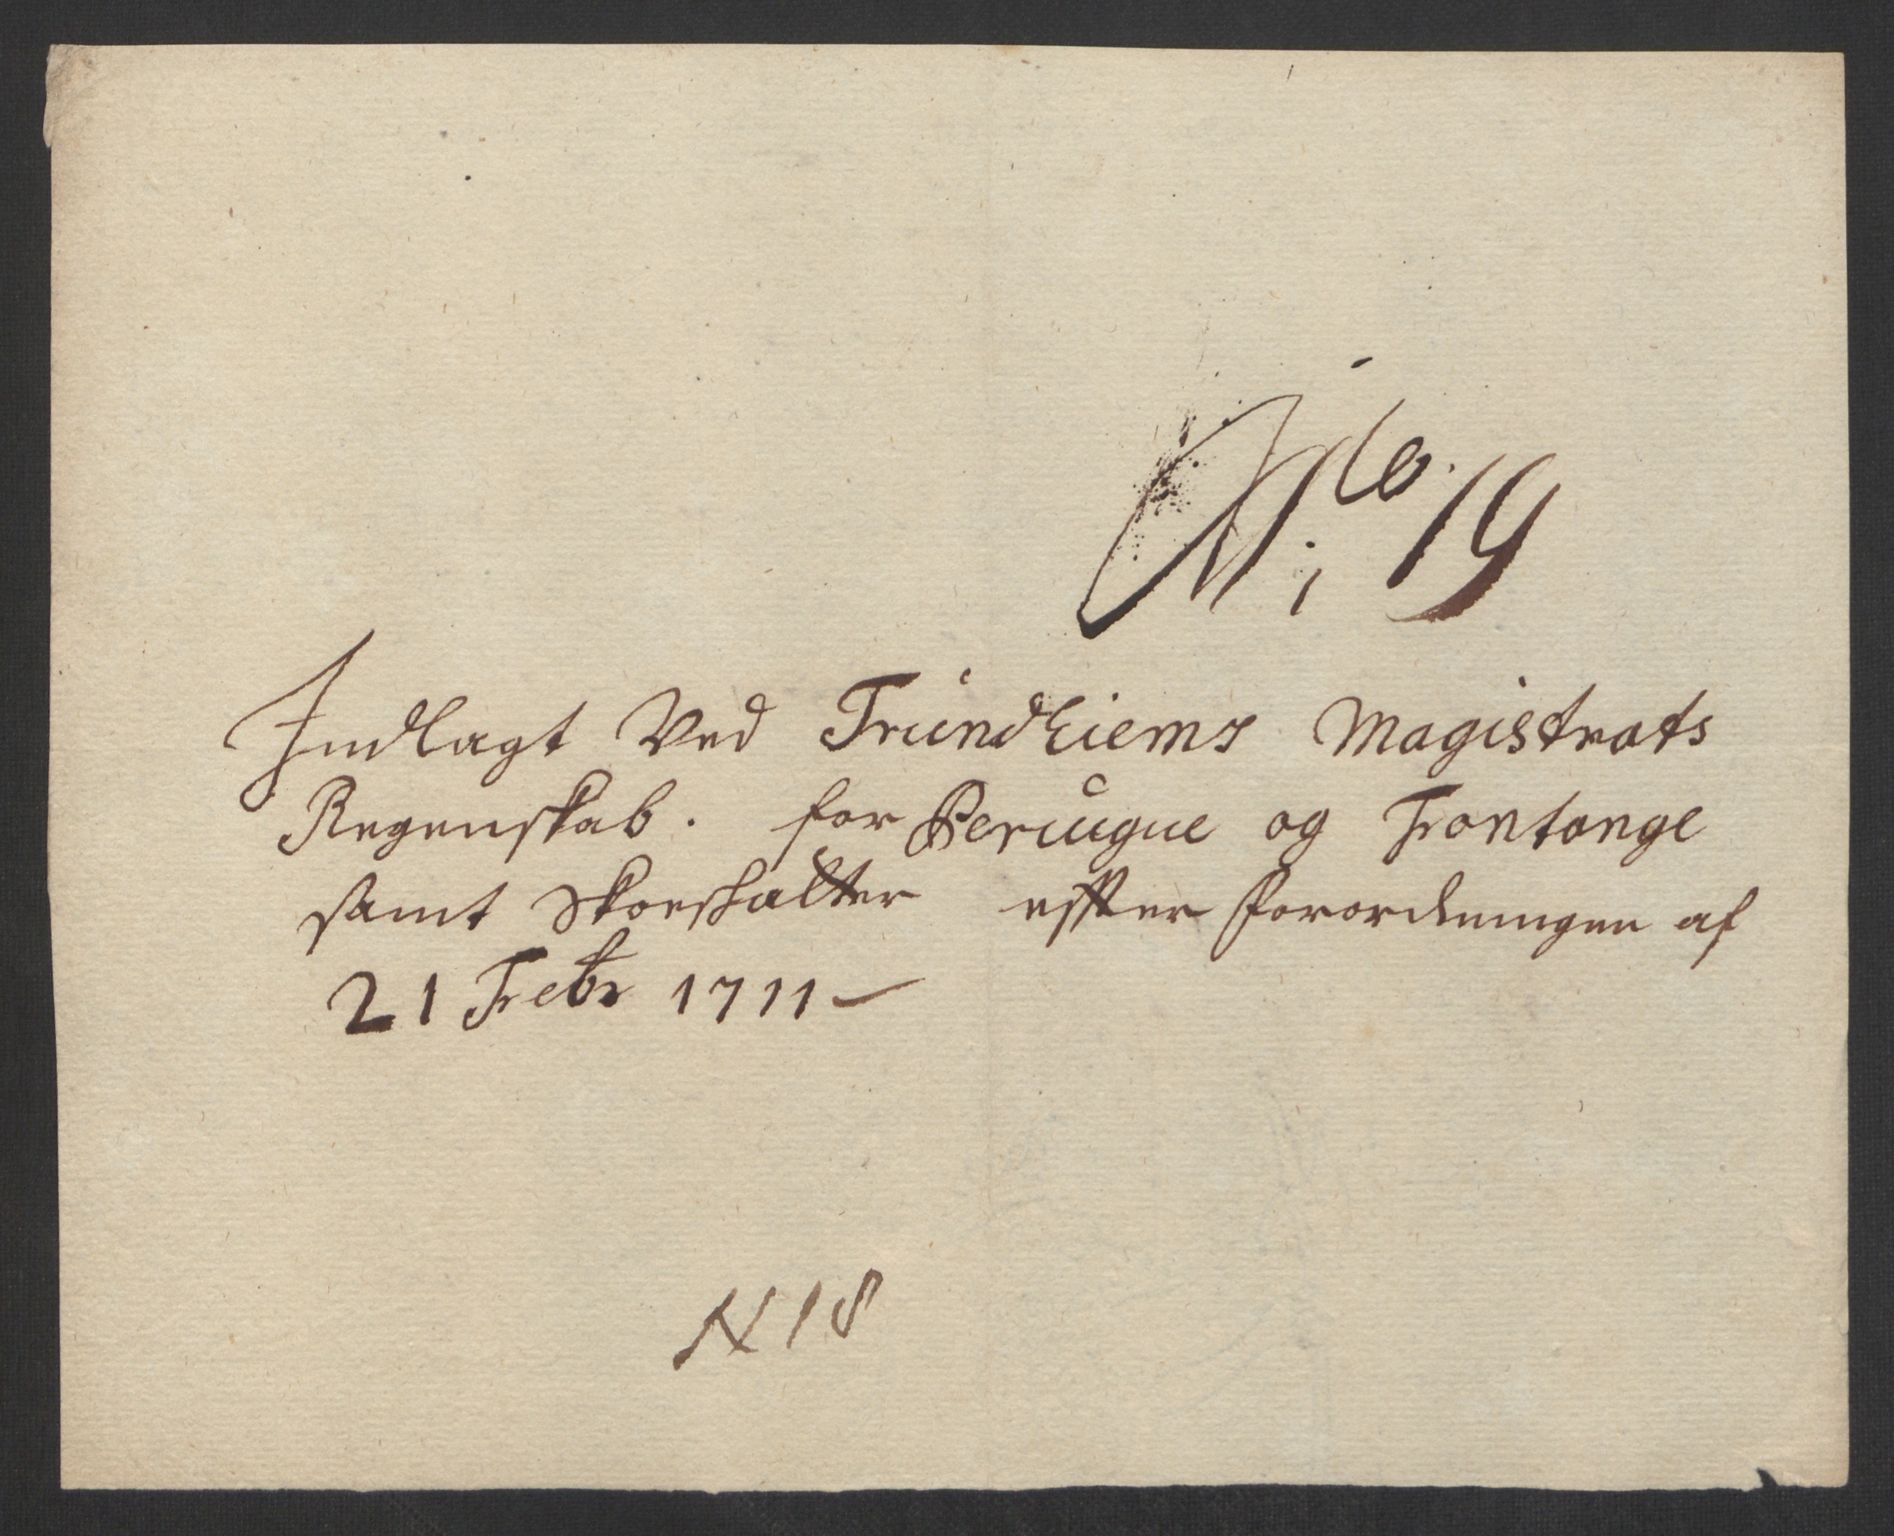 No. 19
Indlagt Ved Trundhiems Magistrats
Regenskab. for Peruque og Fontange
samt Skoeskatter effter forordningen af
21 Febr 1711 —
N 18